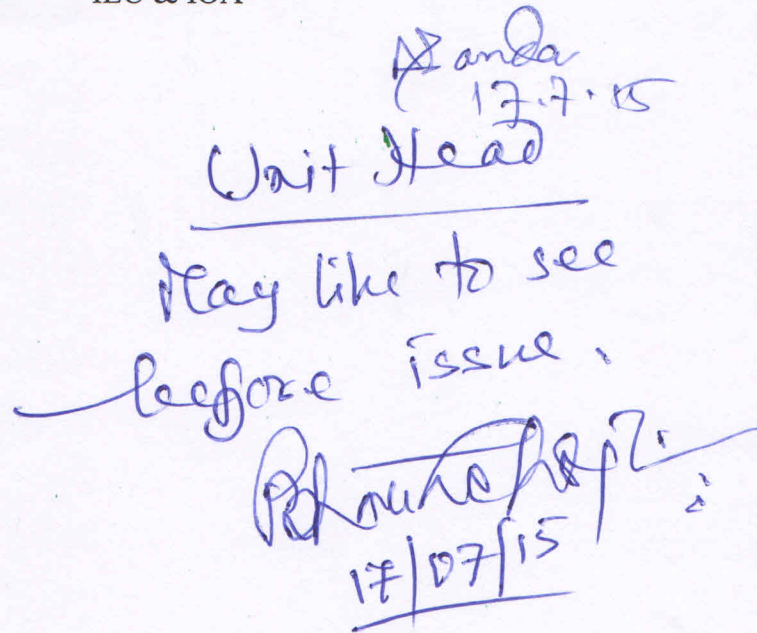 Nanda
17.7.15
Unit Head
May like to see
before issue.
17/07/15